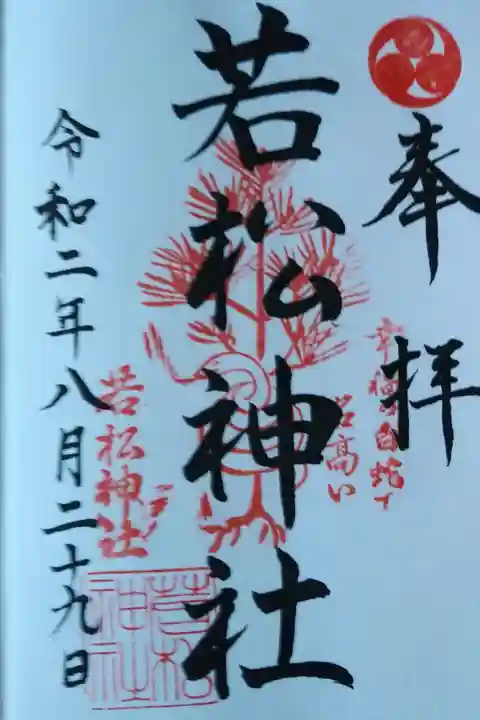 奉拝
幸福の白蛇で
名高い
若松神社
若松神社
令和二年八月二十九日
若松
神社